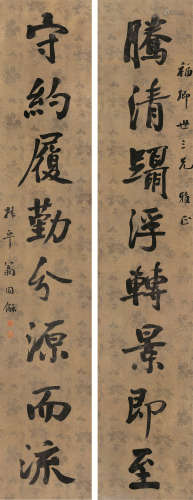 福卿世三兄雅正
騰清躡浮轉景即至
守約履勤分源而流
叔平翁同龢